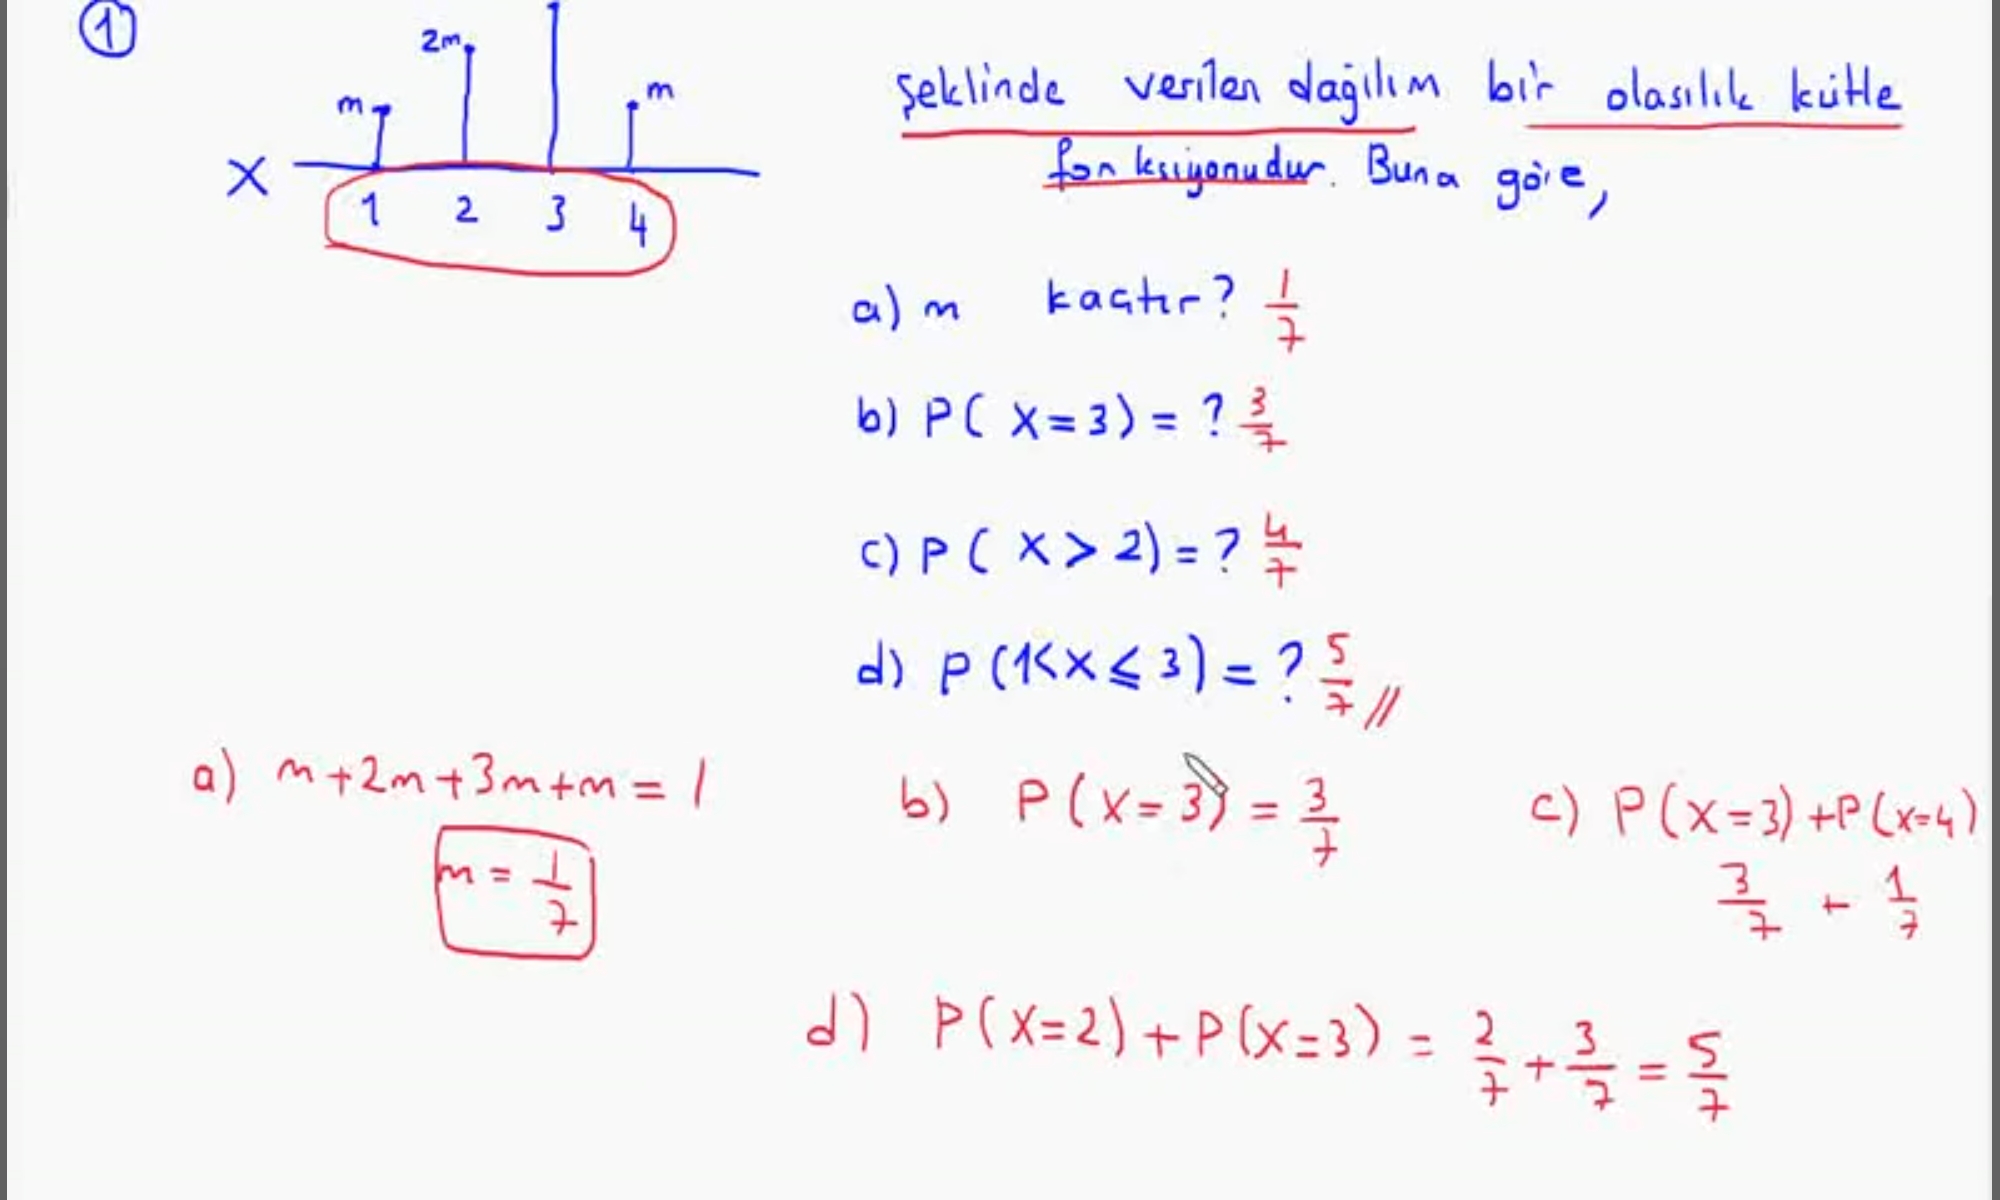 1
2m
m
m
X
1 2 3 4
şeklinde verilen dağılım bir olasılık kütle
fonksiyonudur. Buna göre,
a) m kaçtır? 1/7
b) P( X=3) = ? 3/7
c) P( X > 2) = ? 4/7
d) P(1<X≤3) = ? 5/7 //
a) m+2m+3m+m = 1
m = 1/7
b) P(X=3) = 3/7
c) P(X=3)+P(X=4)
3/7 + 1/7
d) P(X=2)+P(X=3) = 2/7 + 3/7 = 5/7